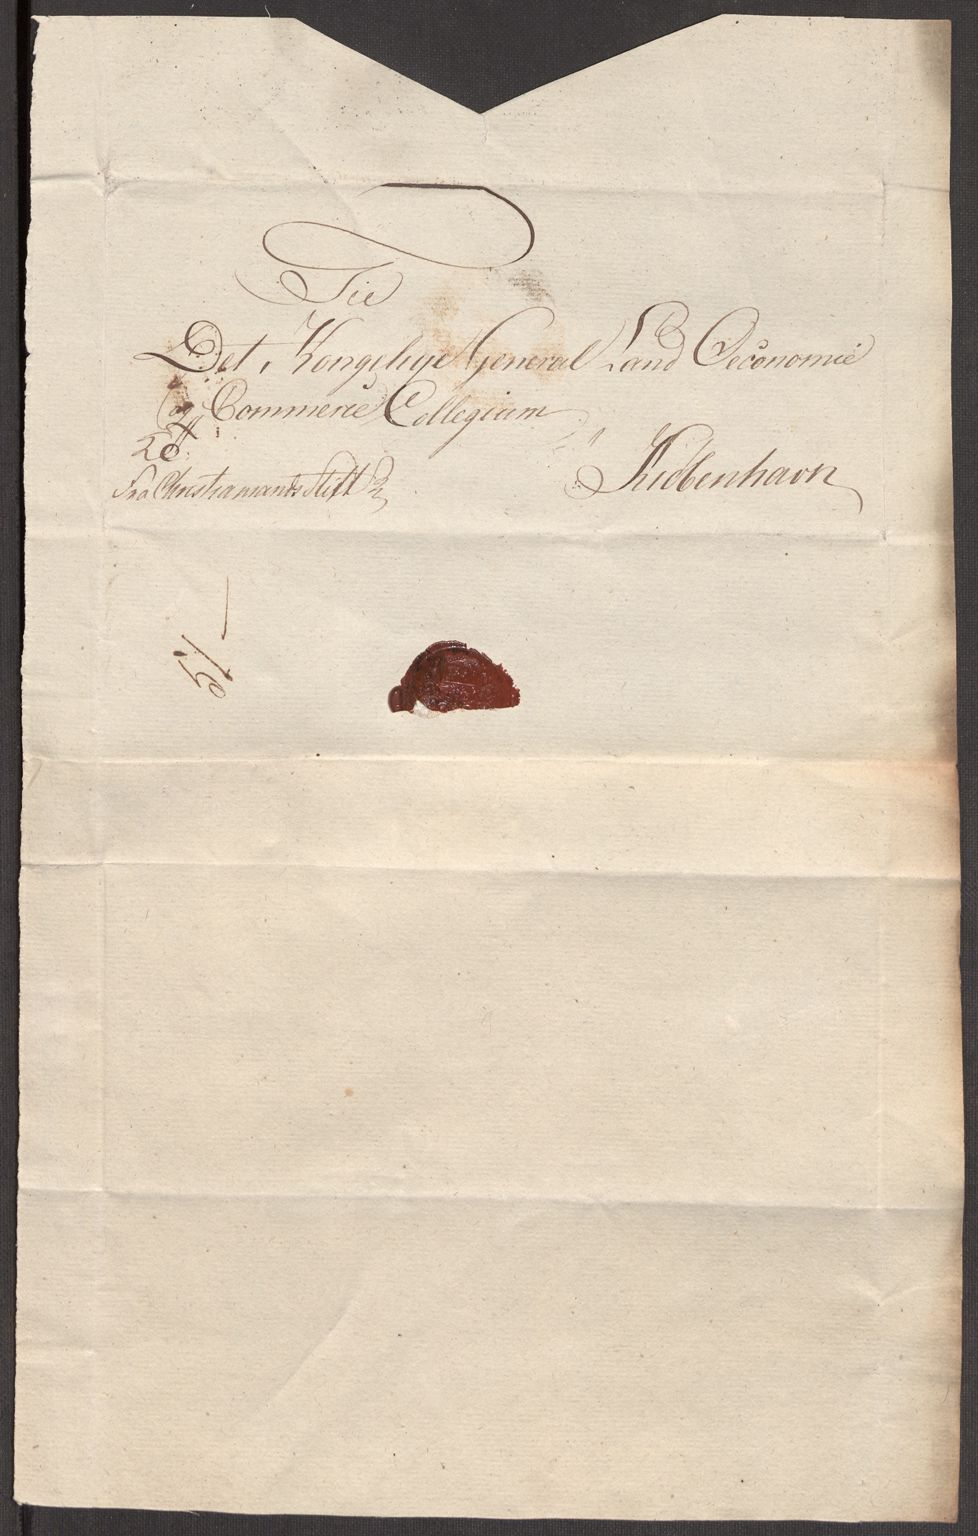 Til
Det Kongelige General Land Oeconomie
og Commerce Collegium
Kiöbenhavn
Fra Christiansands Stift